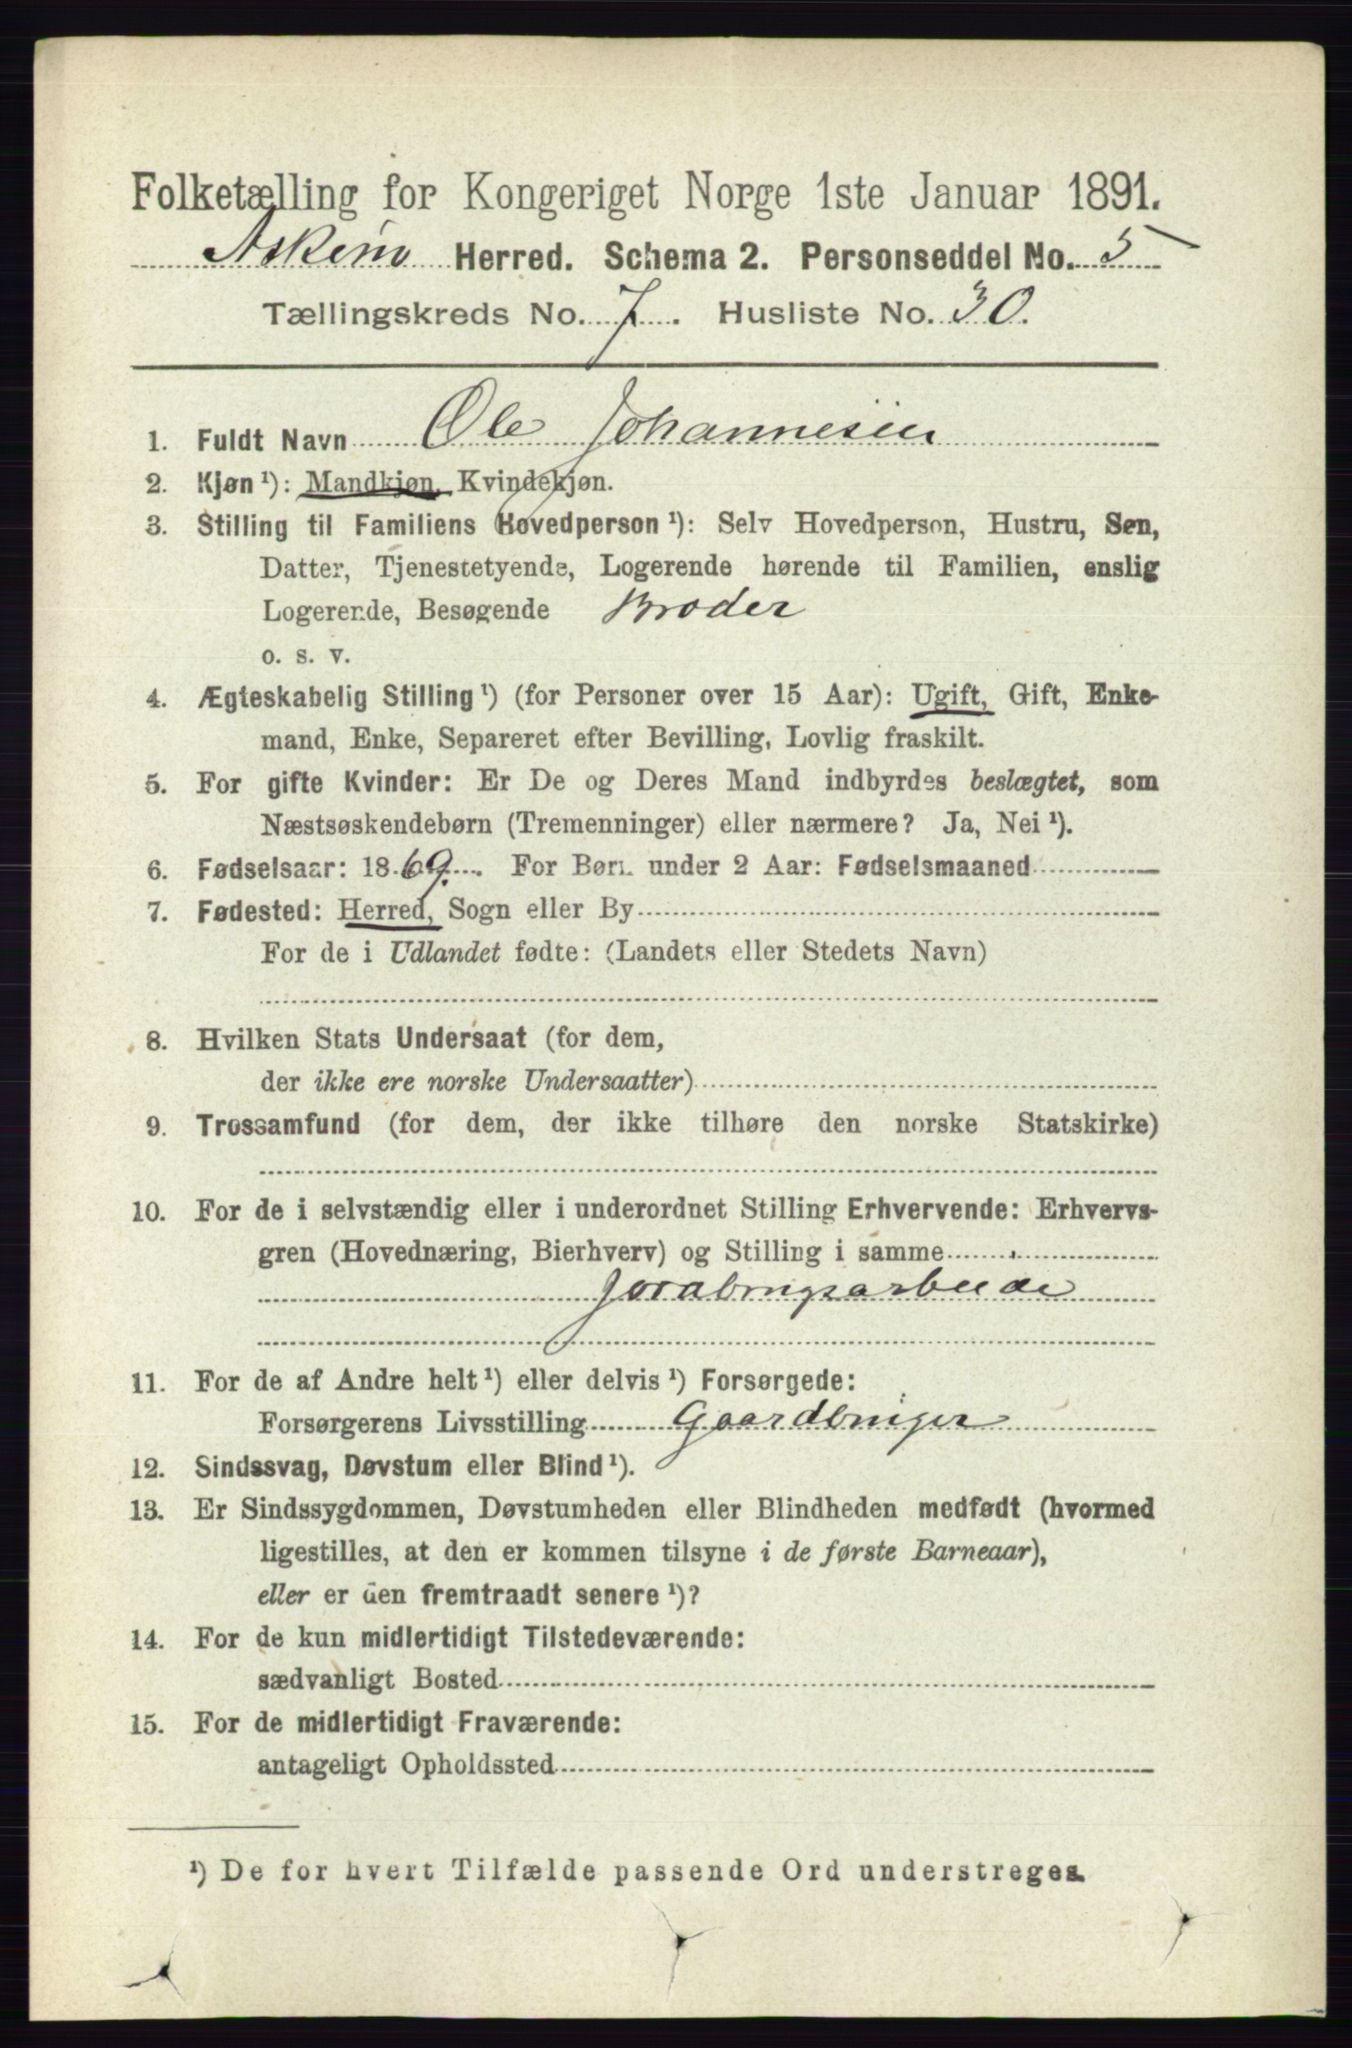 Folketælling for Kongeriget Norge 1ste Januar 1891.
Askim Herred. Schema 2. Personseddel No. 5
Tællingskreds No. 7. Husliste No. 30.
1. Fuldt Navn Ole Johannesen
2. Kjøn ¹): Mandkjøn, Kvindekjøn.
3. Stilling til Familiens Hovedperson ¹): Selv Hovedperson, Hustru, Søn,
Datter, Tjenestetyende, Logerende hørende til Familien, enslig
Logerende, Besøgende Broder
o. s. v.
4. Ægteskabelig Stilling ¹) (for Personer over 15 Aar): Ugift, Gift, Enke-
mand, Enke, Separeret efter Bevilling, Lovlig fraskilt.
5. For gifte Kvinder: Er De og Deres Mand indbyrdes beslægtet, som
Næstsøskendebørn (Tremenninger) eller nærmere? Ja, Nei ¹).
6. Fødselsaar: 1869. For Børn under 2 Aar: Fødselsmaaned
7. Fødested: Herred, Sogn eller By
For de i Udlandet fødte: (Landets eller Stedets Navn)
8. Hvilken Stats Undersaat (for dem,
der ikke ere norske Undersaatter)
9. Trossamfund (for dem, der ikke tilhøre den norske Statskirke)
10. For de i selvstændig eller i underordnet Stilling Erhvervende: Erhvervs-
gren (Hovednæring, Bierhverv) og Stilling i samme
11. For de af Andre helt ¹) eller delvis ¹) Forsørgede:
Forsørgerens Livsstilling Gaardbruger
12. Sindssvag, Døvstum eller Blind ¹).
13. Er Sindssygdommen, Døvstumheden eller Blindheden medfødt (hvormed
ligestilles, at den er kommen tilsyne i de første Barneaar),
eller er den fremtraadt senere ¹)?
14. For de kun midlertidigt Tilstedeværende:
sædvanligt Bosted
15. For de midlertidigt Fraværende:
antageligt Opholdssted
¹) De for hvert Tilfælde passende Ord understreges.